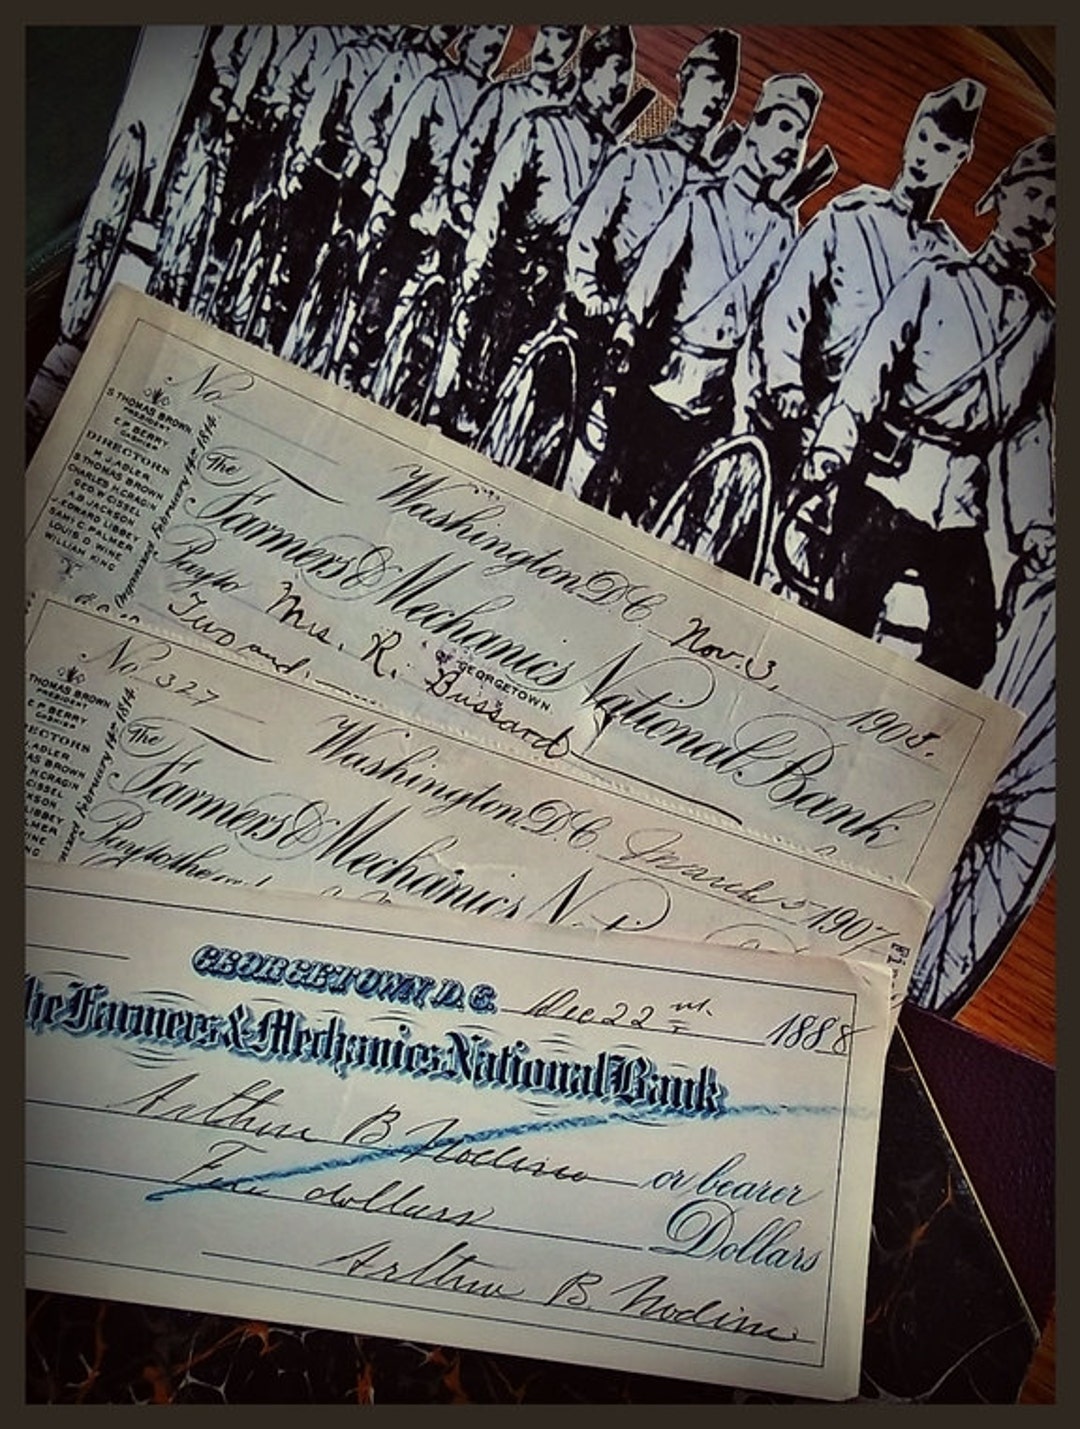 No
S. THOMAS BROWN
PRESIDENT
E.P. BERRY
CASHIER
DIRECTORS
M. J. ADLER
S. THOMAS BROWN
CHARLES H. CRAGIN
GEO. W. CISSEL
A.B. JACKSON
J. EDWARD LIBBEY
SAM'L C. PALMER
LOUIS D. WINE
WILLIAM KING
Organized February 14th 1814.
Washington D.C. Nov. 3, 1903.
The Farmers & Mechanics National Bank
OF GEORGETOWN
Pay to Mrs. R. Bussard
Two and
No. 327
THOMAS BROWN
PRESIDENT
E P BERRY
CASHIER
ECTORS
J. ADLER
AS BROWN
H. CRAGIN
CISSEL
KSON
LIBBEY
LMER
INE
NG
February 14th 1814
Washington D.C. March 5 1907
The Farmers & Mechanics
Pay to the
GEORGETOWN D.C. Dec 22nd 1888
he Farmers & Mechanics National Bank
Arthur B. or bearer
dollars Dollars
Arthur B.